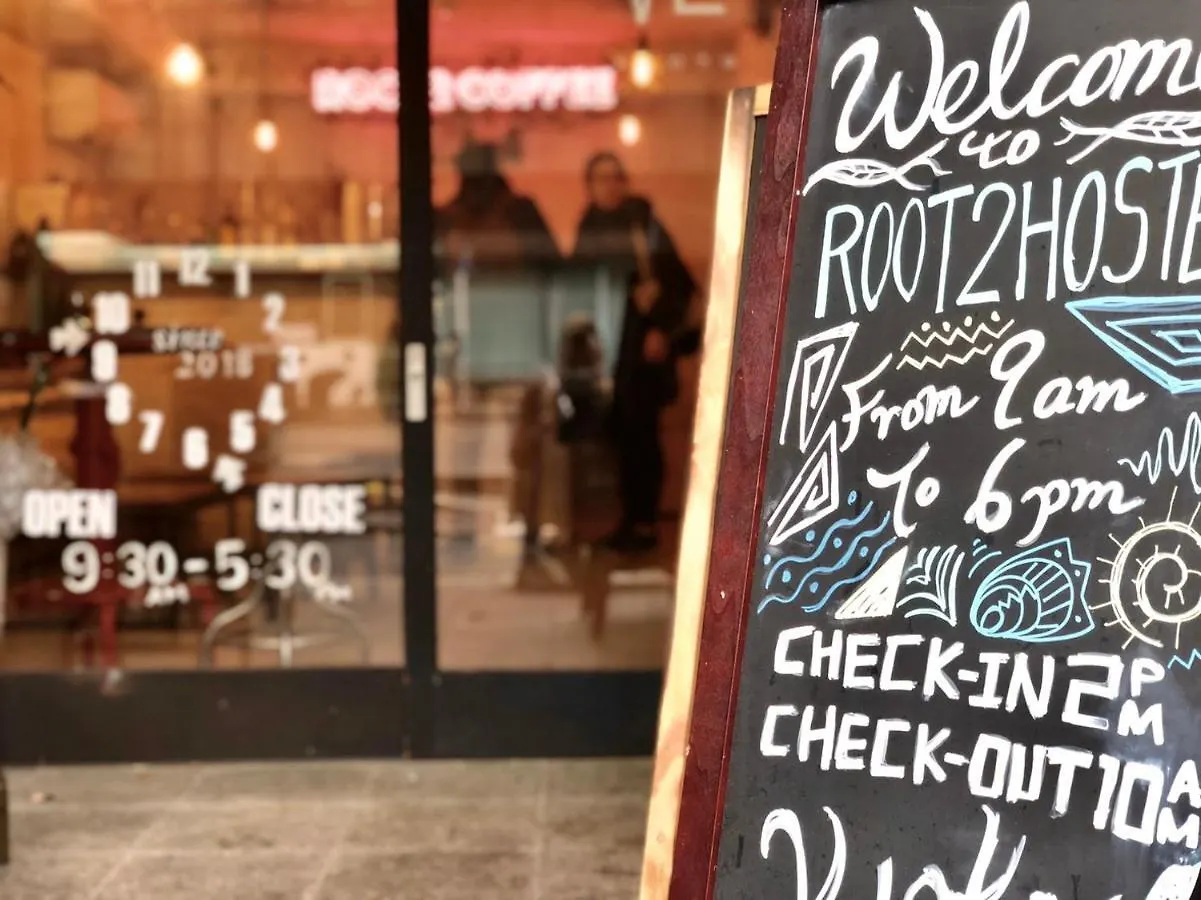 COFFEE
11 12 1
10 2
9 3
8 4
7 6 5
since
2016
OPEN CLOSE
9:30-5:30
AM PM
Welcom
to
ROOT2HOSTE
From 9am
To 6pm
CHECK-IN 2PM
CHECK-OUT 10AM